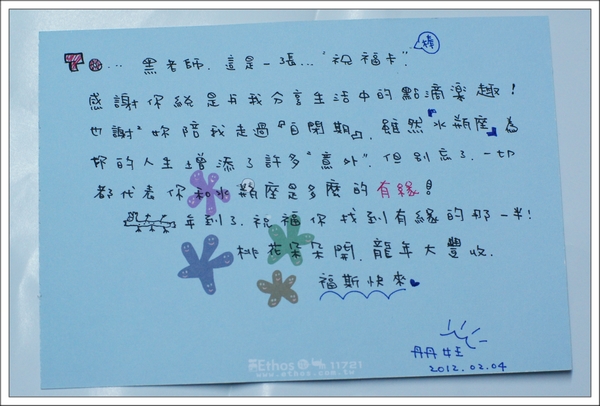 TO... 黑老師. 這是一張... "祝福卡".
棒
感謝你總是與我分享生活中的點滴樂趣!
也謝"妳陪我走過『自閉期』. 雖然『水瓶座』為
妳的人生增添了許多"意外". 但別忘了. 一切
都代表你和水瓶座是多麼的有緣!
年到了. 祝福你找到有緣的那一半!
桃花朵朵開. 龍年大豐收.
福斯快來
丹丹
2012.02.04
Ethos 11721
www.ethos.com.tw